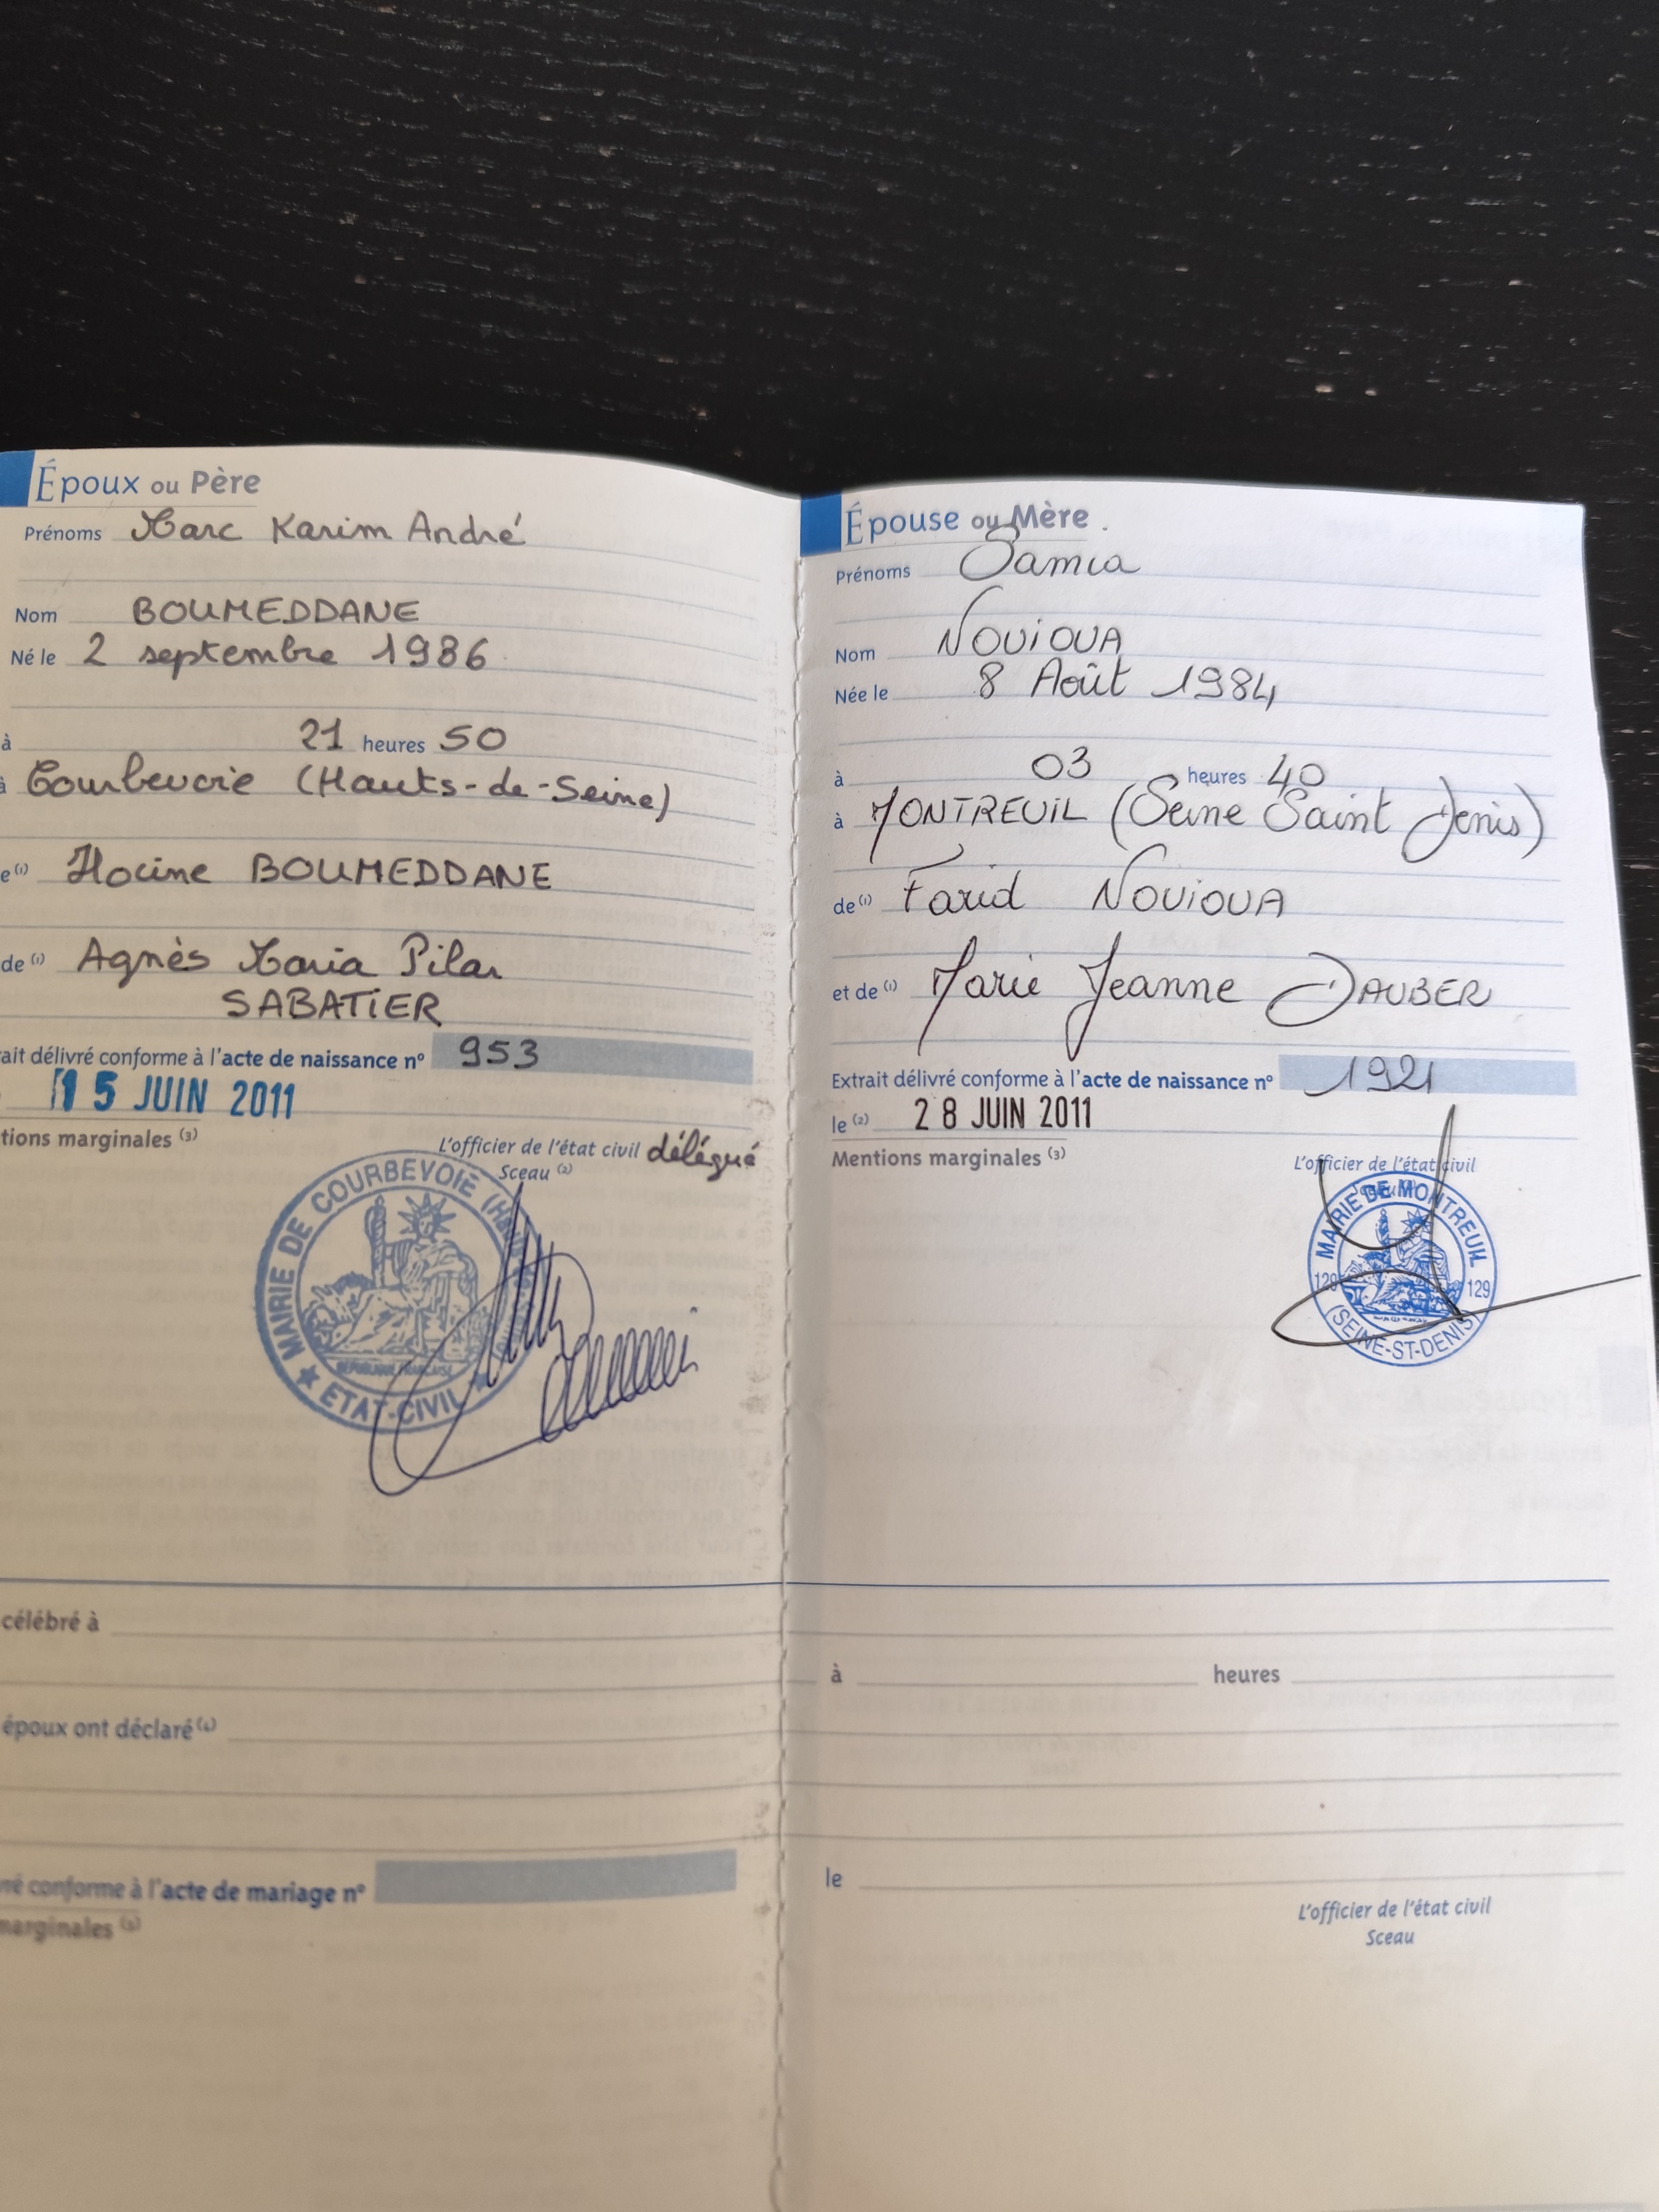 Époux ou Père
Prénoms Marc Karim André
Nom BOUMEDDANE
Né le 2 septembre 1986
à 21 heures 50
à Courbevoie (Hauts-de-Seine)
e (1) Hocine BOUMEDDANE
de (1) Agnès Maria Pilar
SABATIER
rait délivré conforme à l'acte de naissance n° 953
15 JUIN 2011
tions marginales (3)
L'officier de l'état civil délégué
Sceau (2)
MAIRIE DE COURBEVOIE
RÉPUBLIQUE FRANÇAISE
ETAT-CIVIL
célébré à
époux ont déclaré (4)
vré conforme à l'acte de mariage n°
marginales (3)
Épouse ou Mère
Prénoms Samia
Nom NOUIOUA
Née le 8 Août 1984
à 03 heures 40
à MONTREUIL (Seine Saint Denis)
de (1) Farid NOUIOUA
et de (1) Marie Jeanne DAUBER
Extrait délivré conforme à l'acte de naissance n° 1921
le (2) 28 JUIN 2011
Mentions marginales (3)
L'officier de l'état civil
MAIRIE DE MONTREUIL
129 129
(SEINE-ST-DENIS)
à heures
le
L'officier de l'état civil
Sceau